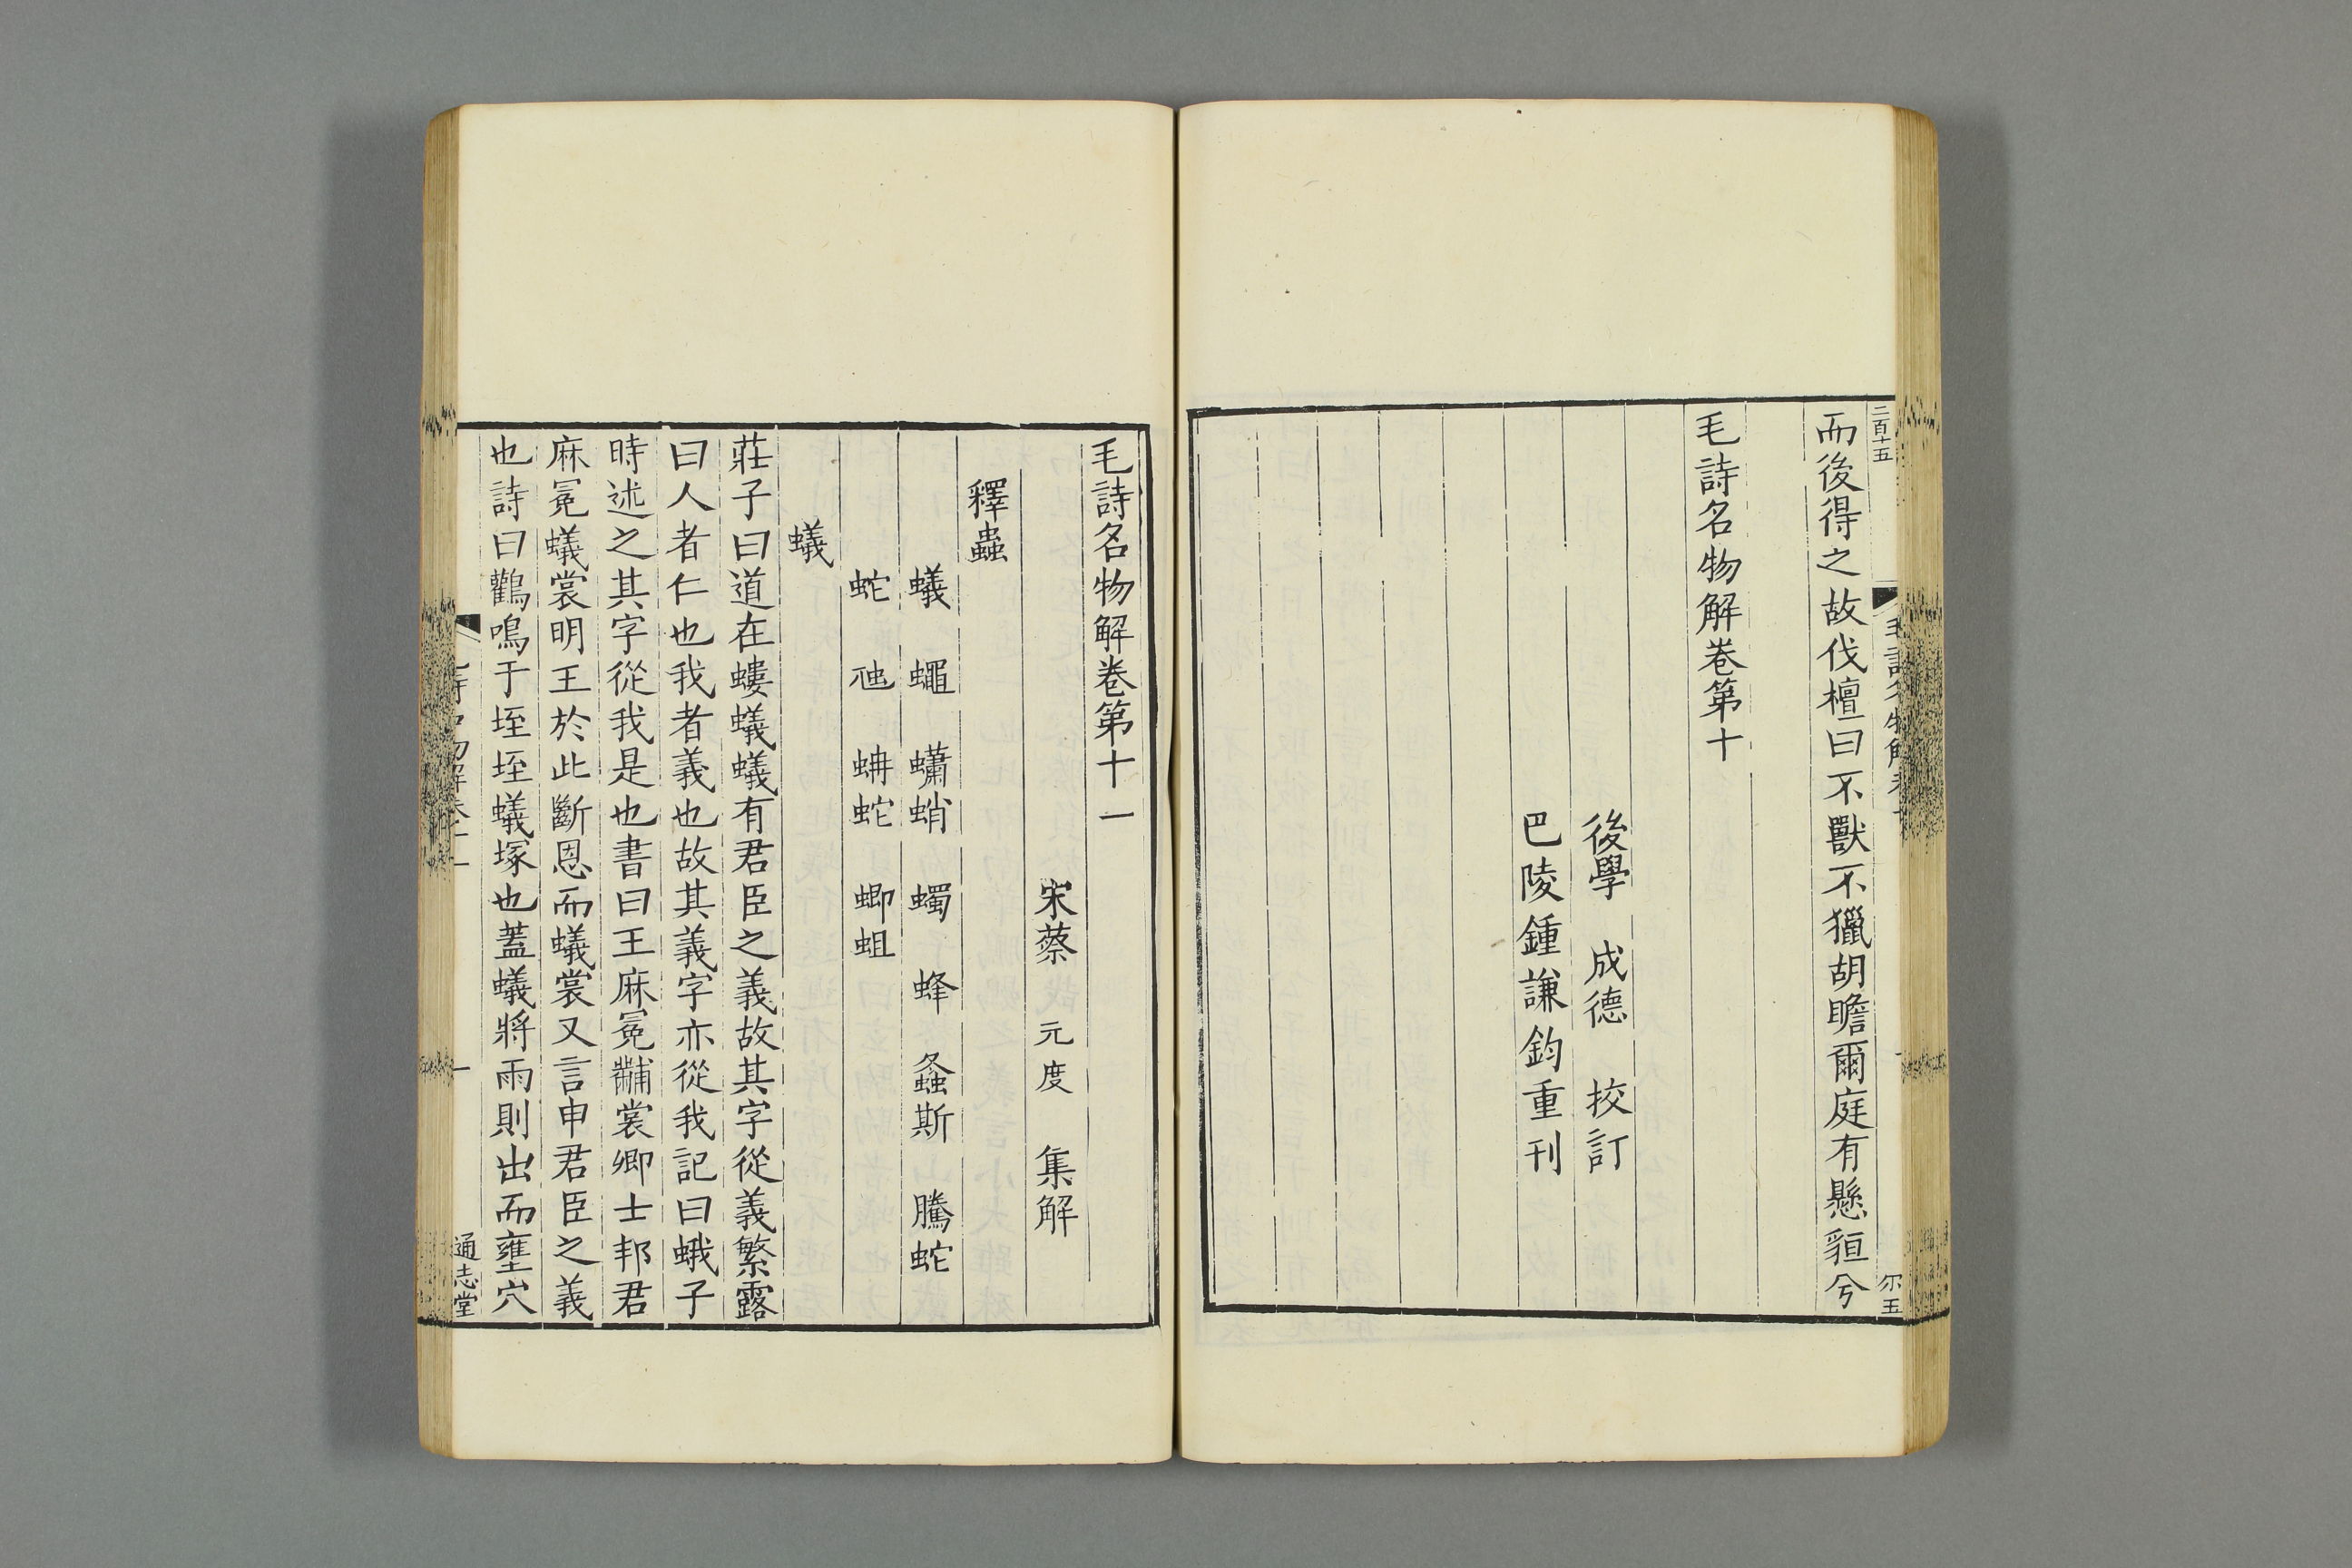 二百十五
而後得之故伐檀曰不獸不獵胡瞻爾庭有懸貆兮
尔五
毛詩名物解卷第十
後學　成德　校訂
巴陵鍾謙鈞重刊
毛詩名物解卷第十一
宋蔡　元度　集解
釋蟲
蟻　蠅　蠨蛸　蠋　蜂　螽斯　螣蛇
蛇　虺　蚺蛇　蝍蛆
蟻
莊子曰道在螻蟻蟻有君臣之義故其字從義繁露
曰人者仁也我者義也故其義字亦從我記曰蛾子
時述之其字從我是也書曰王麻冕黼裳卿士邦君
麻冕蟻裳明王於此斷恩而蟻裳又言申君臣之義
也詩曰鸛鳴于垤垤蟻塚也蓋蟻將雨則出而壅穴
一
通志堂